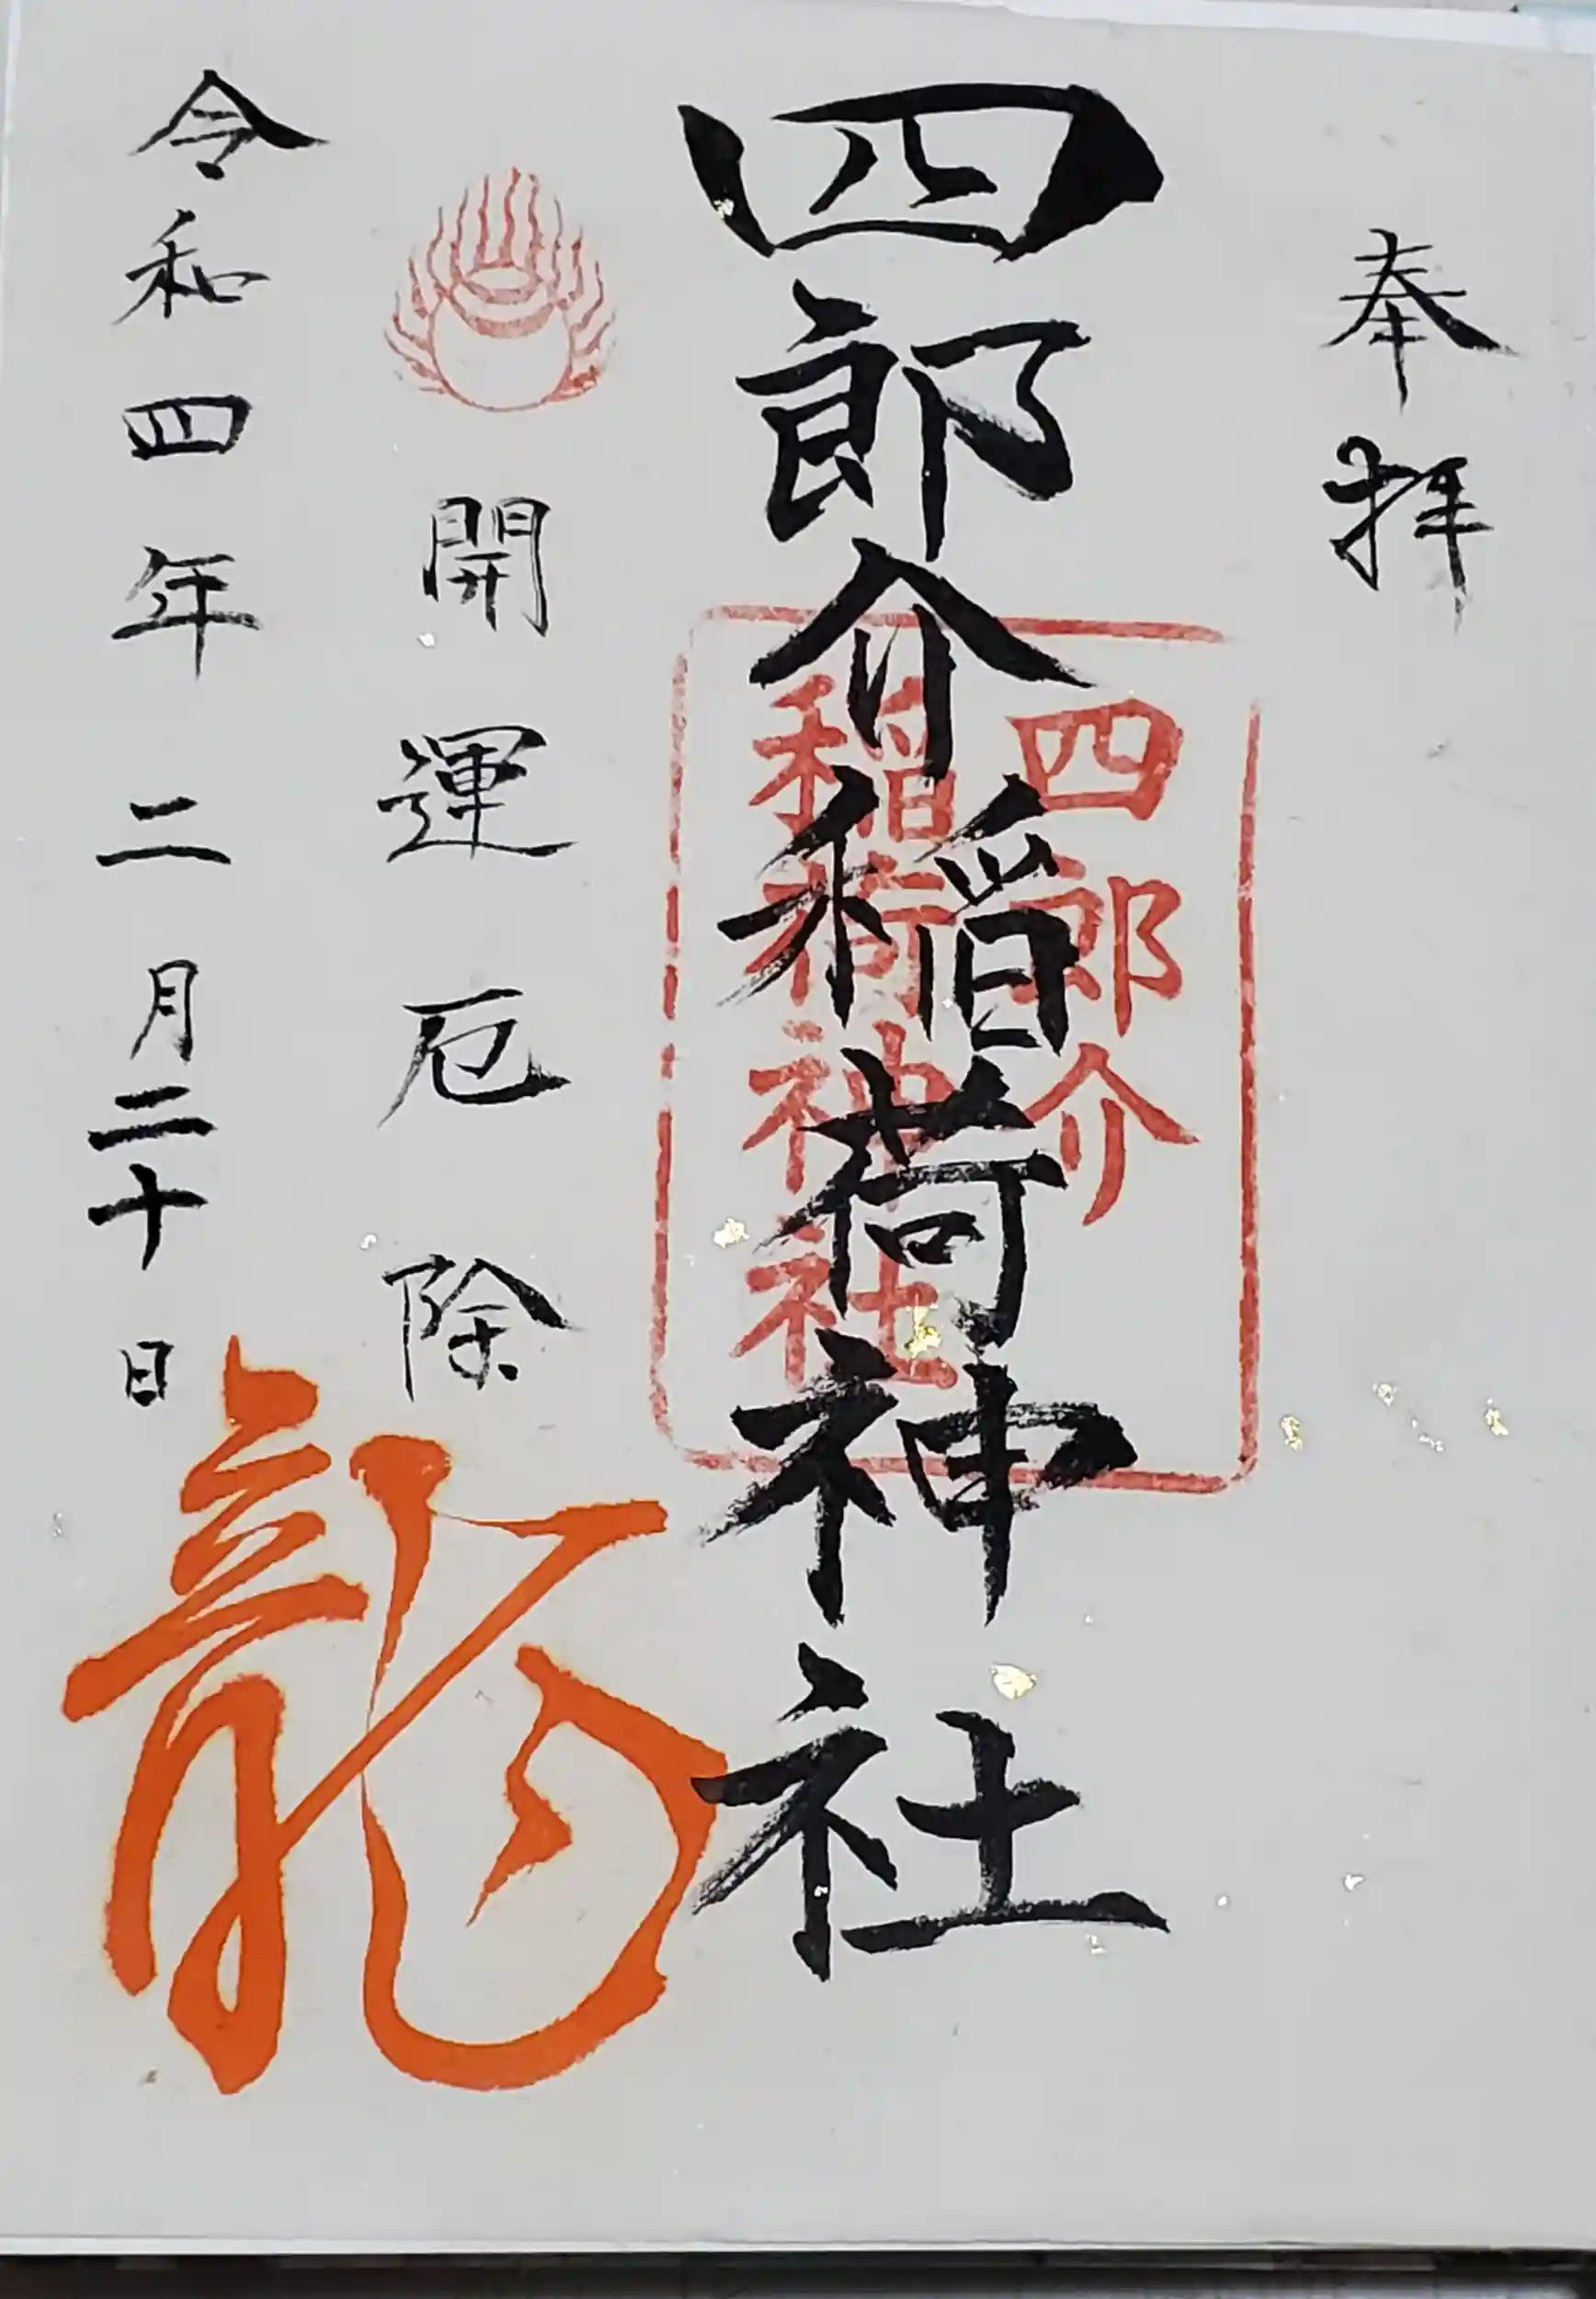 奉拝
四郎介稲荷神社
四郎介
稲荷神社
開運厄除
令和四年二月二十日
龍